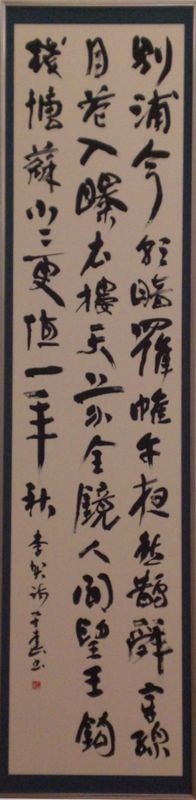 別浦今朝暗羅帷午夜愁鵲辭穿線
月花入曝衣樓天上分金鏡人間望玉鉤
錢塘蘇小〻更值一年秋 李賀詩